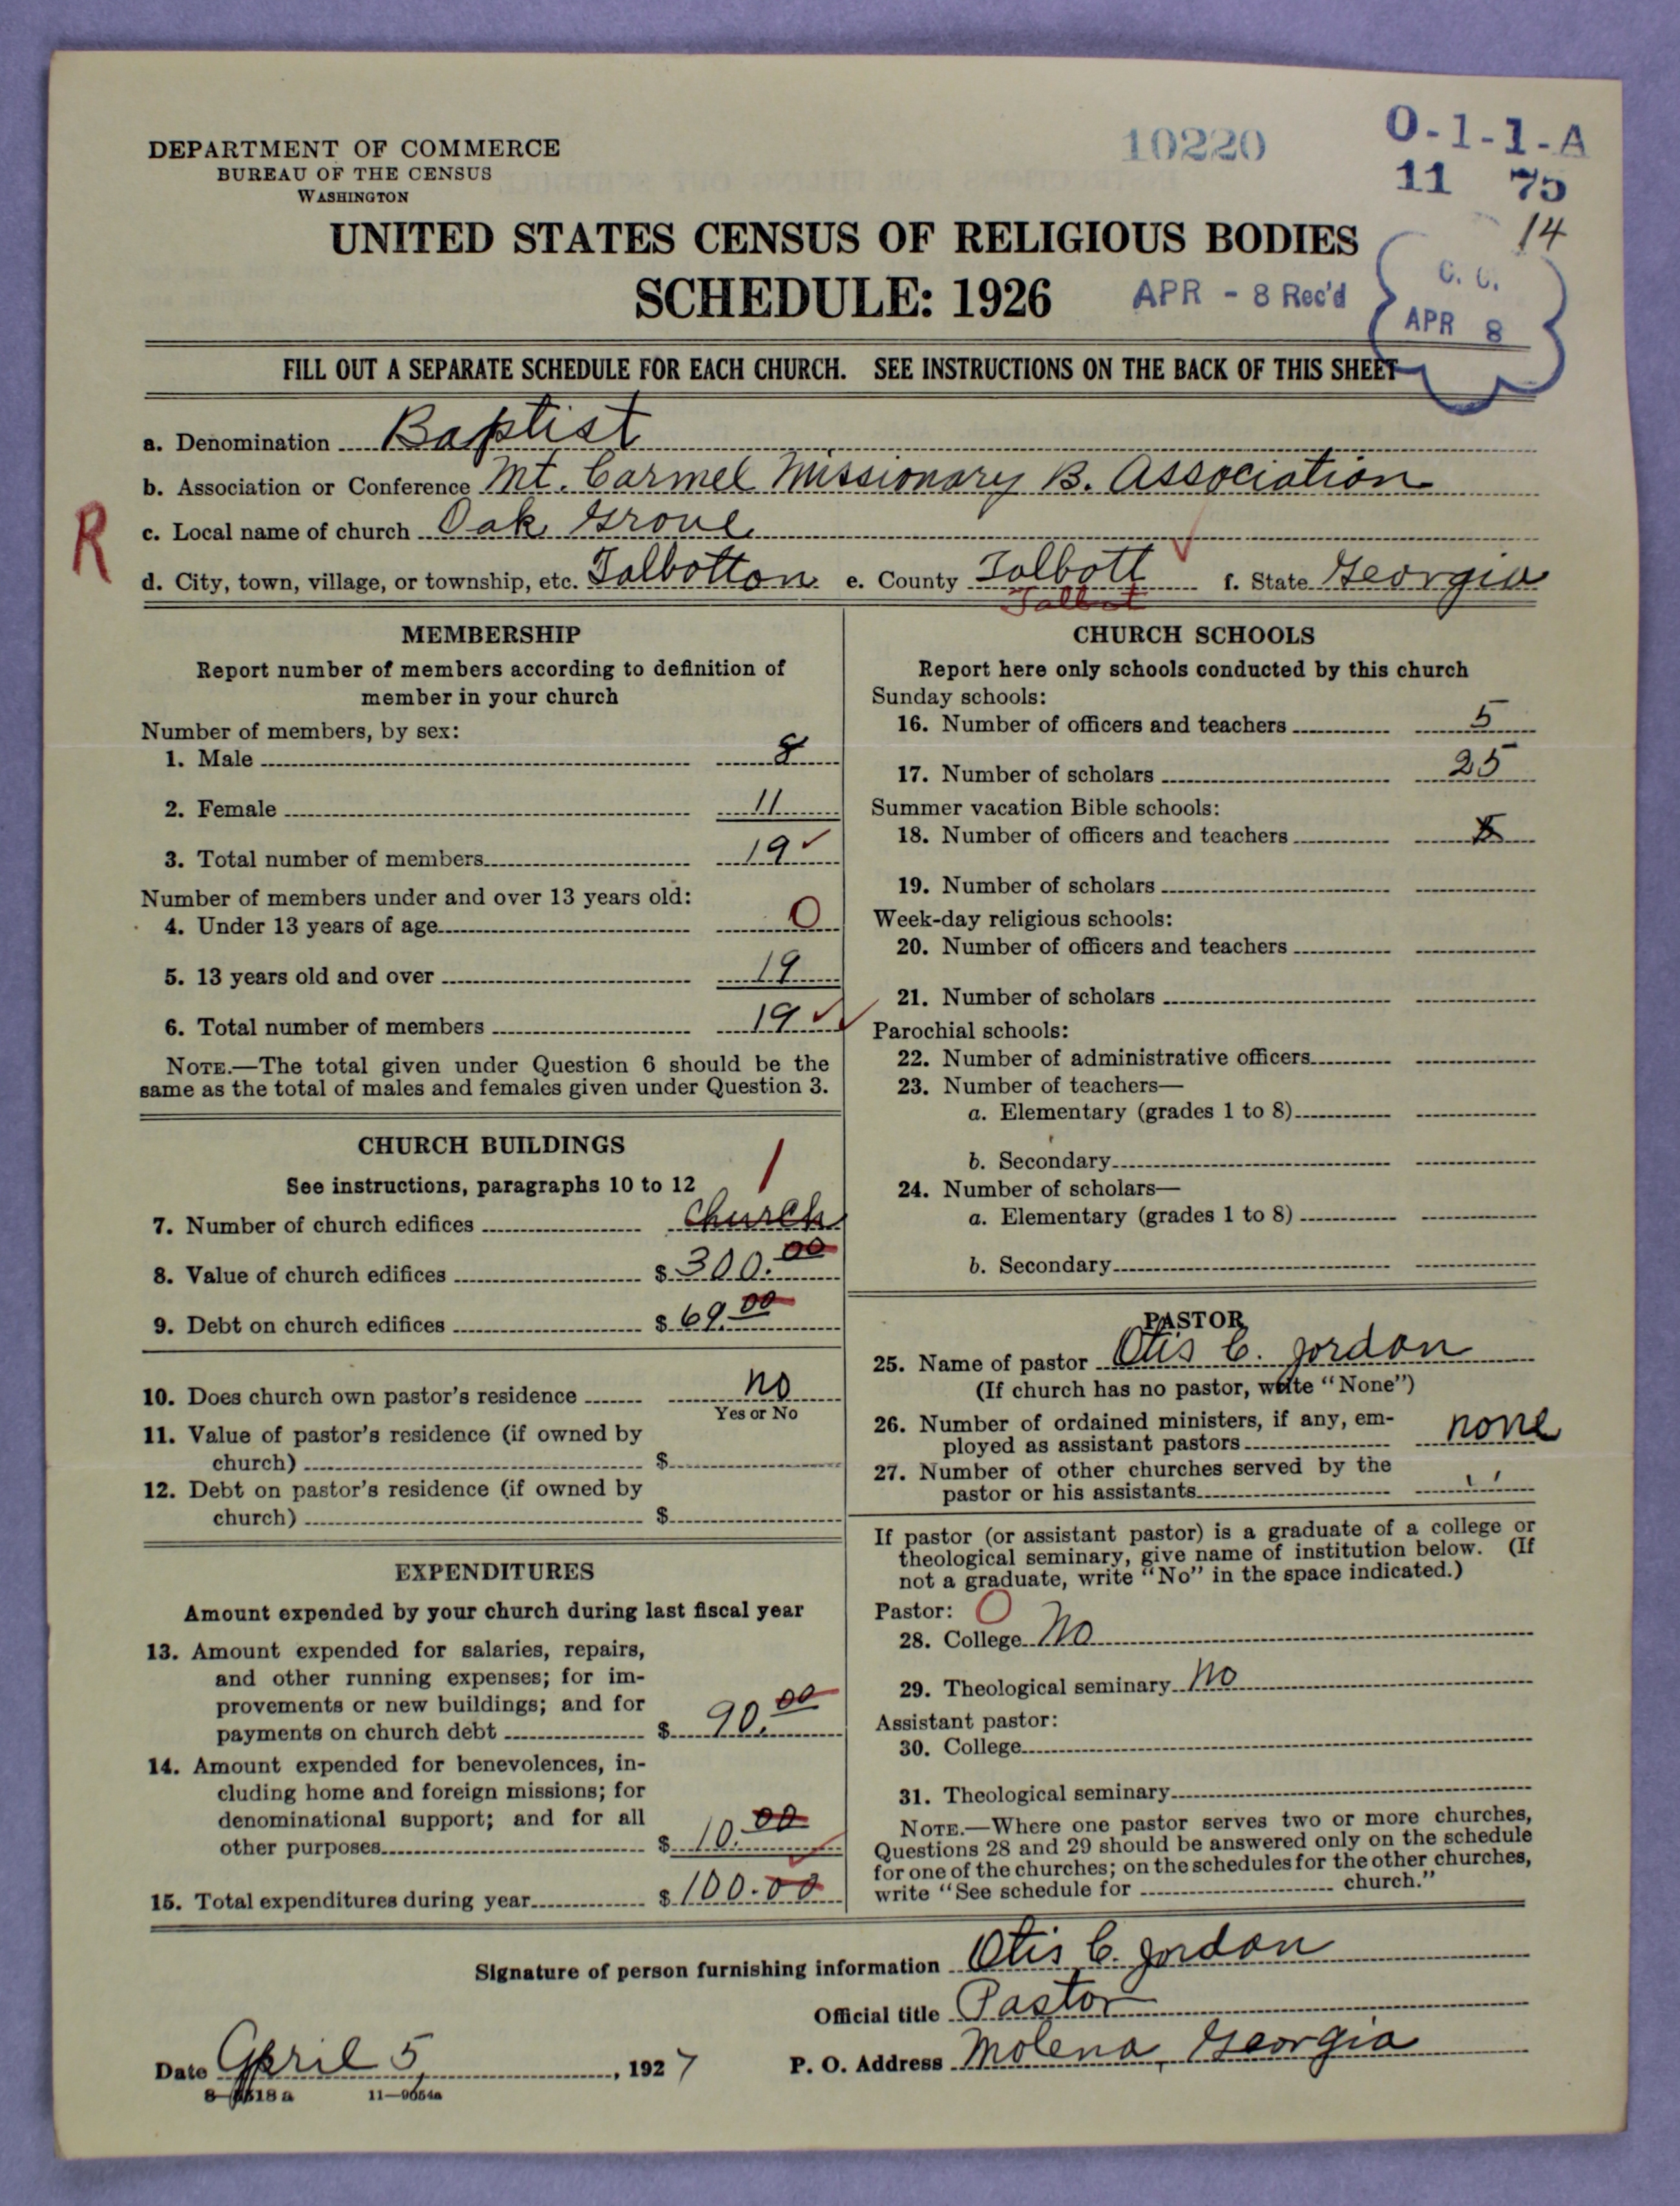 DEPARTMENT OF COMMERCE
BUREAU OF THE CENSUS
WASHINGTON
10220
O-1-1-A
11 75
14
UNITED STATES CENSUS OF RELIGIOUS BODIES
SCHEDULE: 1926
APR - 8 Rec'd
C. C.
APR 8
FILL OUT A SEPARATE SCHEDULE FOR EACH CHURCH. SEE INSTRUCTIONS ON THE BACK OF THIS SHEET
a. Denomination Baptist
b. Association or Conference Mt. Carmel Missionary B. Association
R
c. Local name of church Oak Grove
d. City, town, village, or township, etc. Talbotton e. County Talbott f. State Georgia
Talbot
MEMBERSHIP
Report number of members according to definition of
member in your church
Number of members, by sex:
1. Male 8
2. Female 11
3. Total number of members 19 ✓
Number of members under and over 13 years old:
4. Under 13 years of age 0
5. 13 years old and over 19
6. Total number of members 19 ✓
NOTE.—The total given under Question 6 should be the
same as the total of males and females given under Question 3.
CHURCH BUILDINGS
See instructions, paragraphs 10 to 12
1
7. Number of church edifices Church
8. Value of church edifices $ 300.00
9. Debt on church edifices $ 69.00
10. Does church own pastor's residence no
Yes or No
11. Value of pastor's residence (if owned by
church) $
12. Debt on pastor's residence (if owned by
church) $
EXPENDITURES
Amount expended by your church during last fiscal year
13. Amount expended for salaries, repairs,
and other running expenses; for im-
provements or new buildings; and for
payments on church debt $ 90.00
14. Amount expended for benevolences, in-
cluding home and foreign missions; for
denominational support; and for all
other purposes $ 10.00
15. Total expenditures during year $ 100.00
CHURCH SCHOOLS
Report here only schools conducted by this church
Sunday schools:
16. Number of officers and teachers 5
17. Number of scholars 25
Summer vacation Bible schools:
18. Number of officers and teachers
19. Number of scholars
Week-day religious schools:
20. Number of officers and teachers
21. Number of scholars
Parochial schools:
22. Number of administrative officers
23. Number of teachers—
a. Elementary (grades 1 to 8)
b. Secondary
24. Number of scholars—
a. Elementary (grades 1 to 8)
b. Secondary
PASTOR
25. Name of pastor Otis C. Jordan
(If church has no pastor, write "None")
26. Number of ordained ministers, if any, em-
ployed as assistant pastors none
27. Number of other churches served by the
pastor or his assistants "
If pastor (or assistant pastor) is a graduate of a college or
theological seminary, give name of institution below. (If
not a graduate, write "No" in the space indicated.)
Pastor: O
28. College No
29. Theological seminary No
Assistant pastor:
30. College
31. Theological seminary
NOTE.—Where one pastor serves two or more churches,
Questions 28 and 29 should be answered only on the schedule
for one of the churches; on the schedules for the other churches,
write "See schedule for church."
Signature of person furnishing information Otis C. Jordan
Official title Pastor
Date April 5, 1927 P. O. Address Molena, Georgia
11—9054a